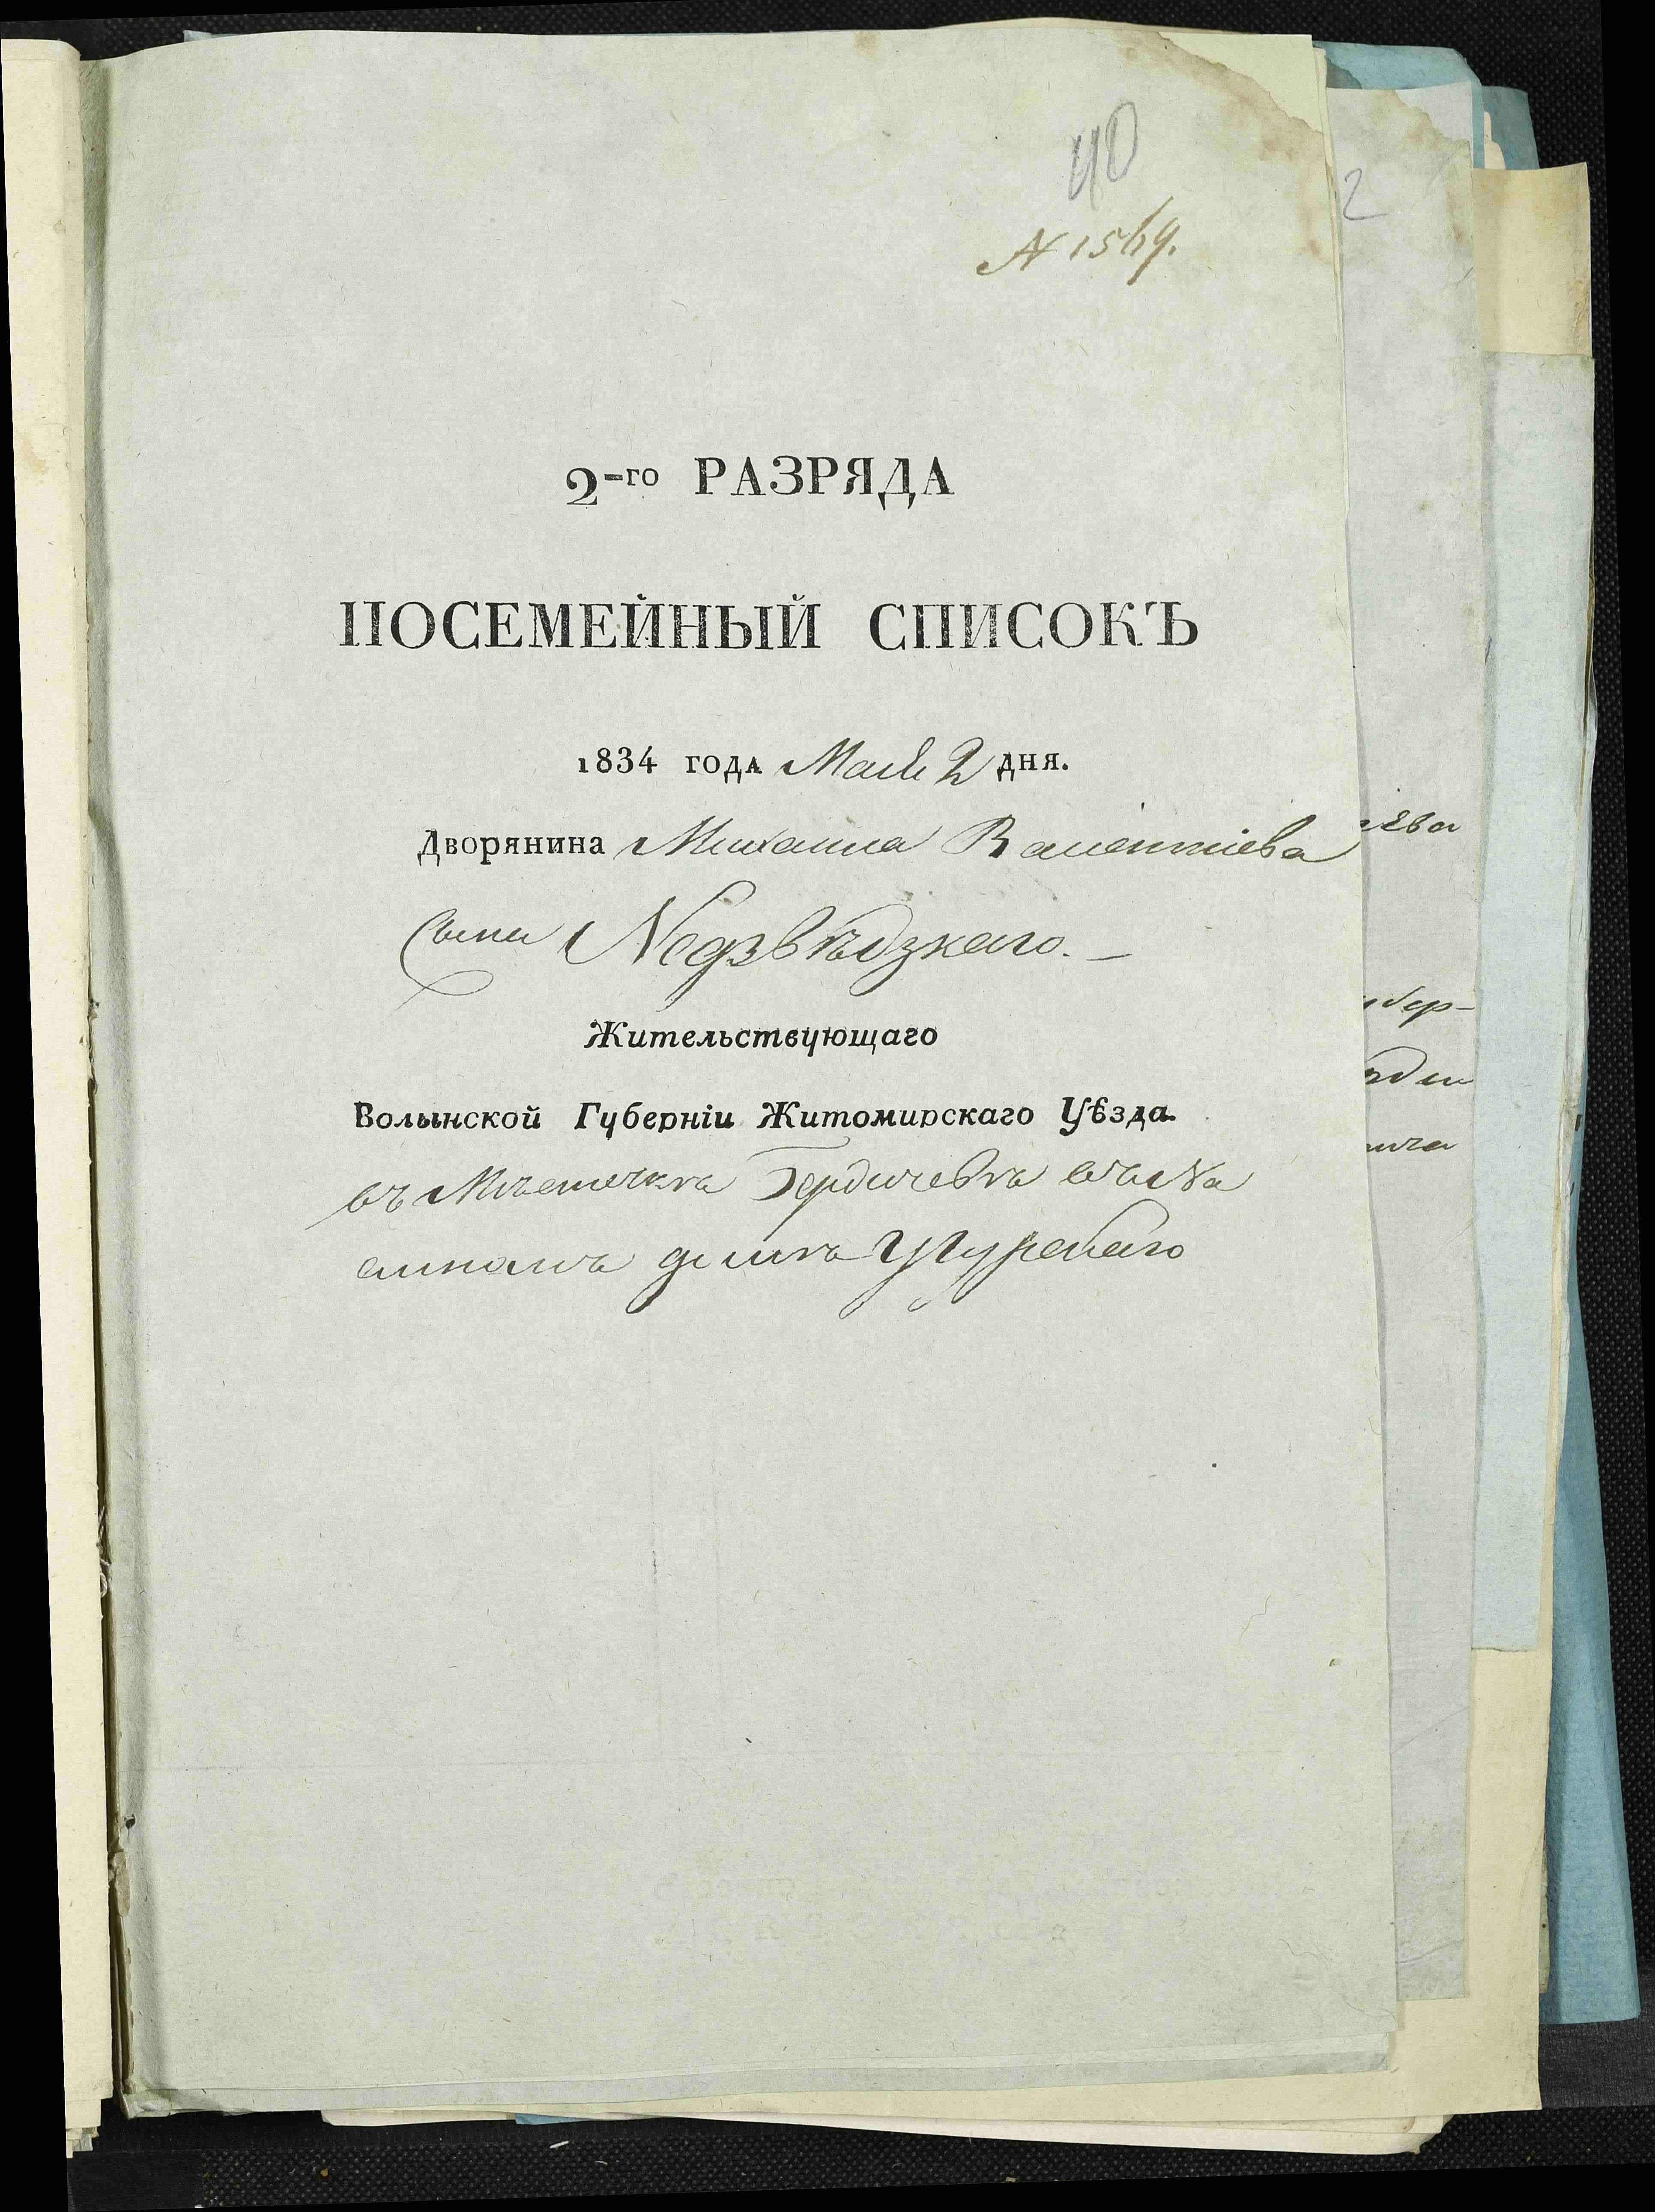 40
N 1569.
2
2-го РАЗРЯДА
ПОСЕМЕЙНЫЙ СПИСОКЪ
1834 года Маія 2 дня.
Дворянина Михаила Валентіева
сына Недзвѣдзкаго. —
Жительствующаго
Волынской Губерніи Житомирскаго Уѣзда
въ Мѣстечкѣ Бердичевѣ
домѣ